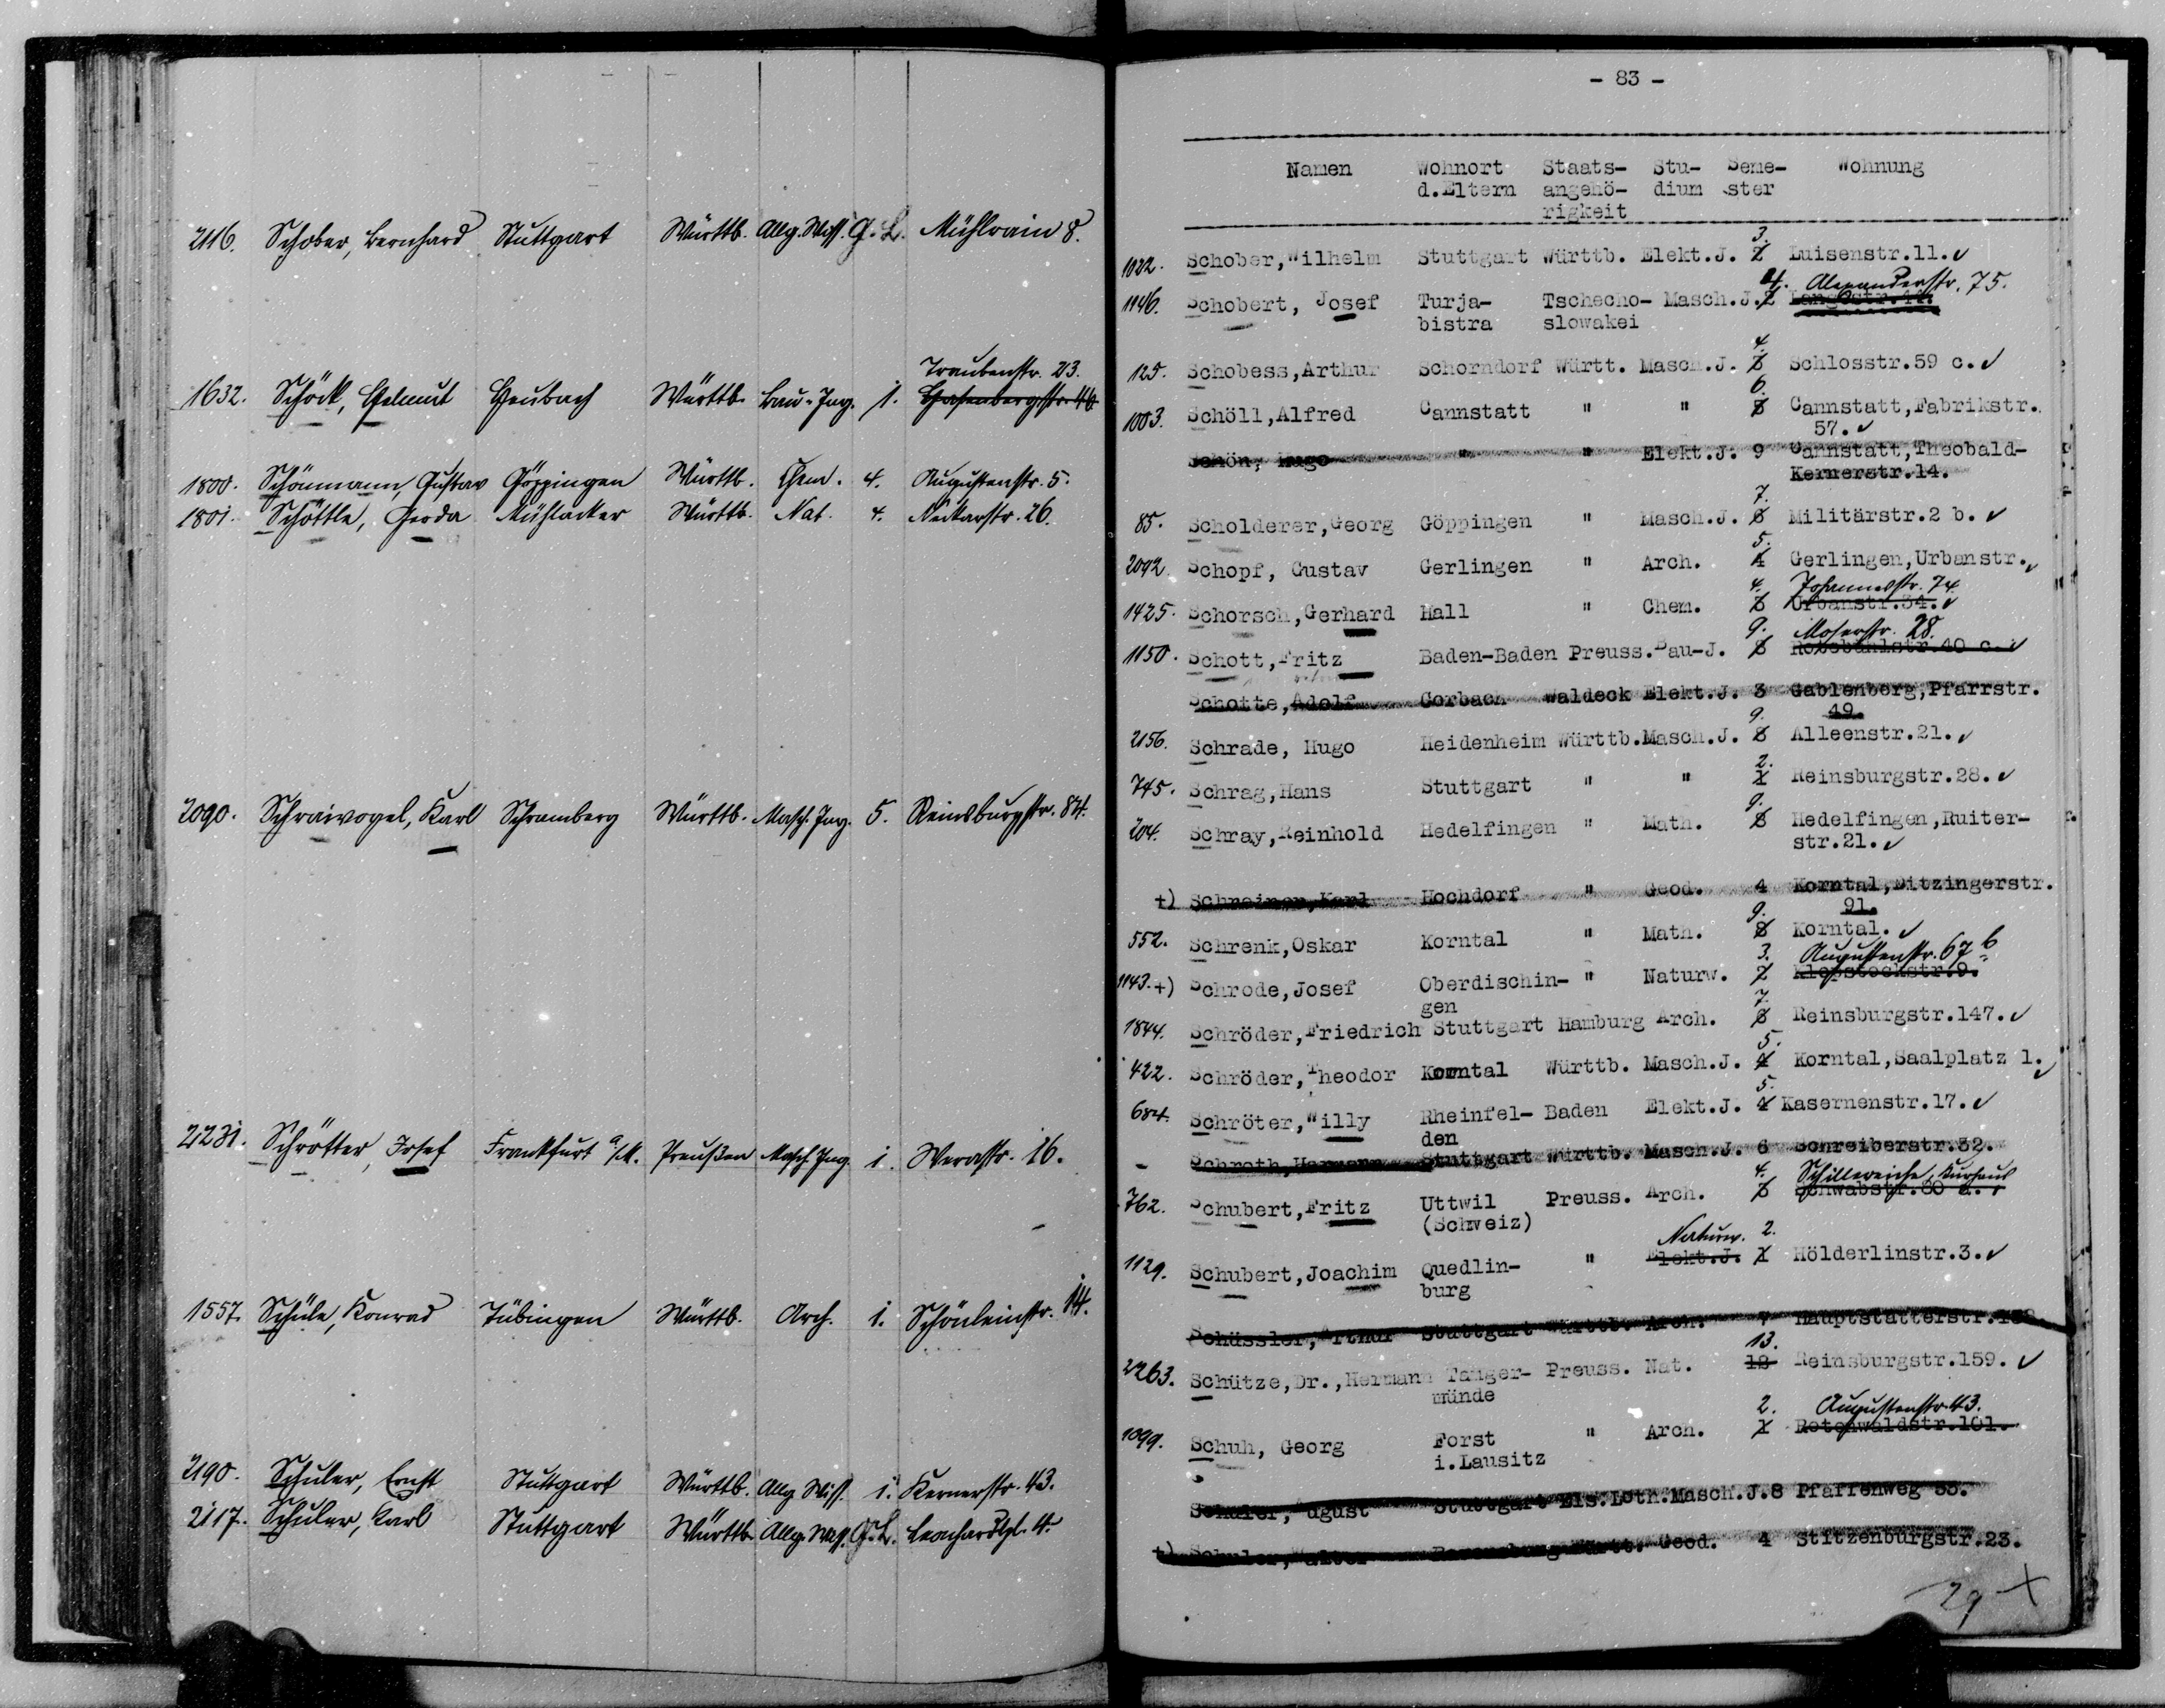 2116. Schober, Bernhard Stuttgart Württb. Allg. Wiss. G.L. Mühlrain 8.
Traubenstr. 23.
1632. Schöck, Helmut Heubach Württb. Bau-Ing. 1. Hasenbergstr. 46
1800. Schönmann, Gustav Göppingen Württb. Chem. 4. Augustenstr. 5.
1801. Schöttle, Gerda Mühlacker Württb. Nat. 4. Neckarstr. 26.
2090. Schraivogel, Karl Schramberg Württb. Masch. Ing. 5. Reinsburgstr. 84.
2231. Schrötter, Josef Frankfurt a/M. Preußen Masch. Ing. 1. Werastr. 16.
1557. Schüle, Konrad Tübingen Württb. Arch. 1. Schönleinstr. 14.
2190. Schuler, Ernst Stuttgart Württb. Allg. Wiss. 1. Kernerstr. 43.
2117. Schuler, Karl Stuttgart Württb. Allg. Wiss. G.L. Leonhardspl. 4.
- 83 -
Namen Wohnort Staats- Stu- Seme- Wohnung
d.Eltern angehö- dium ster
rigkeit
3.
1022. Schober,Wilhelm Stuttgart Württb. Elekt.J. 2 Luisenstr.11.
4. Alexanderstr. 75.
1146. Schobert, Josef Turja- Tschecho- Masch.J.
bistra slowakei
4.
125. Schobess,Arthur Schorndorf Württ. Masch.J. 3 Schlosstr.59 c.
6.
1003. Schöll,Alfred Cannstatt " " Cannstatt,Fabrikstr.
57.
Schön, Hugo " " Elekt.J. 9 Cannstatt,Theobald-
Kernerstr.14.
7.
85. Scholderer,Georg Göppingen " Masch.J. 6 Militärstr.2 b.
5.
2092. Schopf, Gustav Gerlingen " Arch. 4 Gerlingen,Urbanstr.
4. Johannesstr. 74.
1425. Schorsch,Gerhard Hall " Chem. 3 Urbanstr.34.
9. Moserstr. 28.
1150. Schott,Fritz Baden-Baden Preuss.Bau-J. 8 Rotebühlstr.40 c.
Schotte,Adolf Corbach Waldeck Elekt.J. 3 Gablenberg,Pfarrstr.
9. 49.
2156. Schrade, Hugo Heidenheim Württb.Masch.J. 8 Alleenstr.21.
2.
745. Schrag,Hans Stuttgart " " 1 Reinsburgstr.28.
9.
204. Schray,Reinhold Hedelfingen " Math. 8 Hedelfingen,Ruiter-
str.21.
+) Schreiner,Karl Hochdorf " Geod. 4 Korntal,Ditzingerstr.
9. 91.
552. Schrenk,Oskar Korntal " Math. 8 Korntal.
3. Augustenstr. 67 b
1143.+) Schrode,Josef Oberdischin- " Naturw. 2 Klopstockstr.9.
gen 7.
1844. Schröder,Friedrich Stuttgart Hamburg Arch. 6 Reinsburgstr.147.
5.
422. Schröder,Theodor Korntal Württb. Masch.J. 4 Korntal,Saalplatz 1.
5.
684. Schröter,Willy Rheinfel- Baden Elekt.J. 4 Kasernenstr.17.
den
- Schroth,Hermann Stuttgart Württb. Masch.J. 6 Schreiberstr.32.
4. Schillereiche, Kurhaus
762. Schubert,Fritz Uttwil Preuss. Arch. 3 Schwabstr.80 a.
(Schweiz)
Naturw. 2.
1129. Schubert,Joachim Quedlin- " Elekt.J. 1 Hölderlinstr.3.
burg
Schüssler,Arthur Stuttgart Württb. Arch. 7 Hauptstätterstr.
13.
2263. Schütze,Dr.,Hermann Tanger- Preuss. Nat. 12 Reinsburgstr.159.
münde
2. Augustenstr. 43.
1099. Schuh, Georg Forst " Arch. 1 Rotenwaldstr.101.
i.Lausitz
Stuttgart Els.Loth.Masch.J.8 Pfaffenweg 55.
+) Schuler, Walter Ravensburg Württ. Geod. 4 Stitzenburgstr.23.
29 +